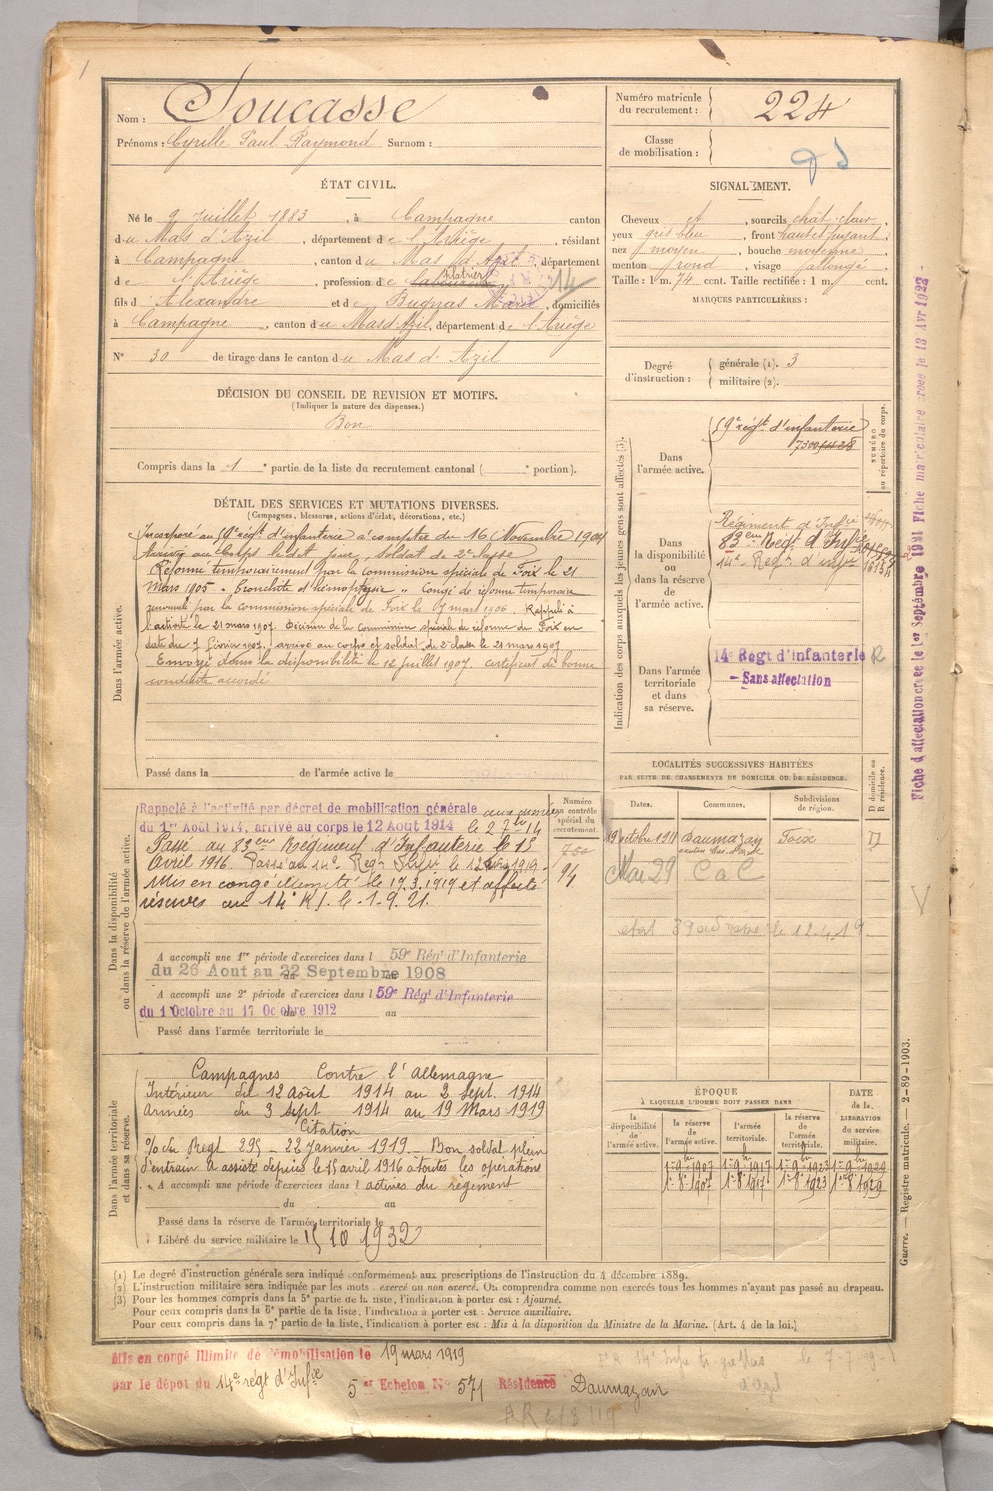 Nom : Soucasse
Prénoms : Cyrille Paul Raymond Surnom :
Numéro matricule du recrutement : 224
Classe de mobilisation :
ÉTAT CIVIL.
Né le 9 Juillet 1883, à Campagne canton
du Mas d'Azil, département de l'Ariège, résidant
à Campagne, canton du Mas d'Azil, département
de l'Ariège, profession de
fils d'Alexandre et de Bugnas Marie, domiciliés
à Campagne, canton du Mas d'Azil, département de l'Ariège
N° 30 de tirage dans le canton du Mas d'Azil
SIGNALEMENT.
Cheveux et, sourcils chât. clair,
yeux gris bleu, front haut et fuyant,
nez moyen, bouche moyenne,
menton rond, visage allongé.
Taille : 1 m. 74 cent. Taille rectifiée : 1 m. cent.
MARQUES PARTICULIÈRES :
DÉCISION DU CONSEIL DE REVISION ET MOTIFS.
(Indiquer la nature des dispenses.)
Bon
Compris dans la 1e partie de la liste du recrutement cantonal ( e portion).
Degré d'instruction : générale (1). 3
militaire (2).
DÉTAIL DES SERVICES ET MUTATIONS DIVERSES.
(Campagnes, blessures, actions d'éclat, décorations, etc.)
Dans l'armée active.
Incorporé au 59e régt d'infanterie à compter du 16 Novembre 1904
Arrivé au Corps le dit jour, soldat de 2e classe
Réformé temporairement par la commission spéciale de Foix le 21
Mars 1905 "Bronchite et hémoptysie" Congé de réforme temporaire
renouvelé par la commission spéciale de Foix le 7 mars 1906 Rappelé à
l'activité le 21 mars 1907. Décision de la Commission spéciale de réforme de Foix en
date du 7 février 1907, arrivé au corps et soldat de 2e classe le 21 mars 1907
Envoyé dans la disponibilité le 12 juillet 1907. certificat de bonne
conduite accordé
Passé dans la de l'armée active le
Indication des corps auxquels les jeunes gens sont affectés (3).
NUMÉRO au répertoire du corps.
Dans l'armée active.
59e régt d'infanterie
Dans la disponibilité ou dans la réserve de l'armée active.
Régiment d'Infie
83eme Regt d'Infie
14e Regt d'infie
Dans l'armée territoriale et dans sa réserve.
14e Regt d'Infanterie R
- Sans affectation
Fiche d'affectation créée le 1er Septembre 1921 Fiche matriculaire créée le 13 Avr 1923 -
Dans la disponibilité ou dans la réserve de l'armée active.
Numéro au contrôle spécial du recrutement.
Rappelé à l'activité par décret de mobilisation générale aux armées
du 1er Août 1914, arrivé au corps le 12 Août 1914 le 2 7bre 14
Passé au 83eme Régiment d'Infanterie le 15
Avril 1916. Passé au 14e Regt
94
Mis en congé illimité le 17.3.1919 et affecté
réserves au 14e R.I. le 1.9.21.
A accompli une 1re période d'exercices dans l 59e Régt d'Infanterie
du 26 Aout au 22 Septembre 1908
A accompli une 2e période d'exercices dans l 59e Régt d'Infanterie
du 1 Octobre au 17 Octobre 1912 au
Passé dans l'armée territoriale le
LOCALITÉS SUCCESSIVES HABITÉES
PAR SUITE DE CHANGEMENTS DE DOMICILE OU DE RÉSIDENCE.
D domicile ou R résidence.
Dates. Communes. Subdivisions de région.
19 octobre 1911 Daumazan Foix D
canton Mas-d'Azil
Mai 29 C a C
Dans l'armée territoriale et dans sa réserve.
Campagnes Contre l'Allemagne
Intérieur du 12 Août 1914 au 2 Sept. 1914
Armées du 3 Sept 1914 au 19 Mars 1919
Citation
O/ du Regt 295 - 22 Janvier 1919 - Bon soldat plein
d'entrain a assisté depuis le 15 avril 1916 à toutes les opérations
A accompli une période d'exercices dans l actives du régiment
du au
Passé dans la réserve de l'armée territoriale le
Libéré du service militaire le 15 10 1932
ÉPOQUE
À LAQUELLE L'HOMME DOIT PASSER DANS
la disponibilité de l'armée active. la réserve de l'armée active. l'armée territoriale. la réserve de l'armée territoriale.
DATE de la LIBÉRATION du service militaire.
1er 9bre 1907 1er 9bre 1917 1er 9bre 1923 1er 9bre 1929
1er 8bre 1907 1er 8bre 1917 1er 8bre 1923 1er 8bre 1929
Guerre. — Registre matricule. — 2-89-1903.
(1) Le degré d'instruction générale sera indiqué conformément aux prescriptions de l'instruction du 4 décembre 1889.
(2) L'instruction militaire sera indiquée par les mots : exercé ou non exercé. On comprendra comme non exercés tous les hommes n'ayant pas passé au drapeau.
(3) Pour les hommes compris dans la 5e partie de la liste, l'indication à porter est : Ajourné.
Pour ceux compris dans la 6e partie de la liste, l'indication à porter est : Service auxiliaire.
Pour ceux compris dans la 7e partie de la liste, l'indication à porter est : Mis à la disposition du Ministre de la Marine. (Art. 4 de la loi.)
Mis en congé illimité de démobilisation le 19 mars 1919
par le dépot du 14e régt d'Infie 5me Echelon N° 571 Résidence Daumazan